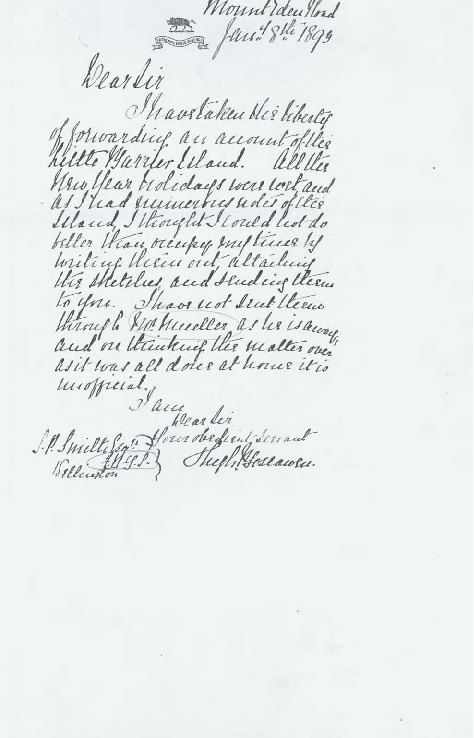 Mount Eden Road
Jany 8th 1893
Dear Sir
I have taken the liberty
of forwarding an account of the
Little Barrier Island. All the
New Year holidays were wet and
as I had numerous notes of the
Island, I thought I could not do
better than occupy my time by
writing them out, attaching
the sketches, and sending them
to you. I have not sent them
through Mr Mueller as he is away,
and on thinking the matter over
as it was all done at home it is
unofficial.
I am
Dear Sir
Your obedient Servant
S. P. Smith Esqre
Hugh Boscawen.
Wellington